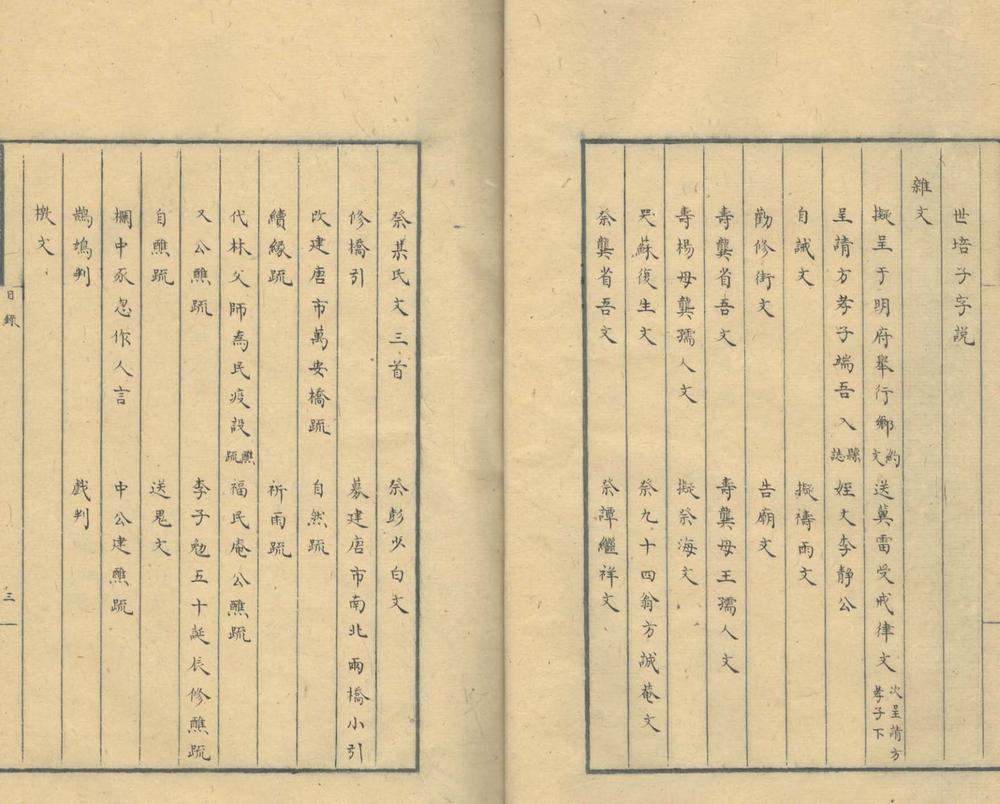 世培子字說
雜文
擬呈于明府舉行鄉約文 送蓂雷受戒律文 次呈請方孝子下
呈請方孝子端吾入縣誌 姪文李靜公
自誡文 擬禱雨文
勸修街文 告廟文
壽龔省吾文 壽龔母王孺人文
壽楊母龔孺人文 擬祭海文
哭蘇復生文 祭九十四翁方誠菴文
祭龔省吾文 祭譚繼祥文
祭某氏文三首 祭彭少白文
修橋引 募建唐市南北兩橋小引
改建唐市萬安橋疏 自然疏
續緣疏 祈雨疏
代林父師為民疫設醮疏 福民庵公醮疏
又公醮疏 李子勉五十誕辰修醮疏
自醮疏 送鬼文
欄中豕忽作人言 中公建醮疏
鵲鳩判 戲判
檄文
目錄 三